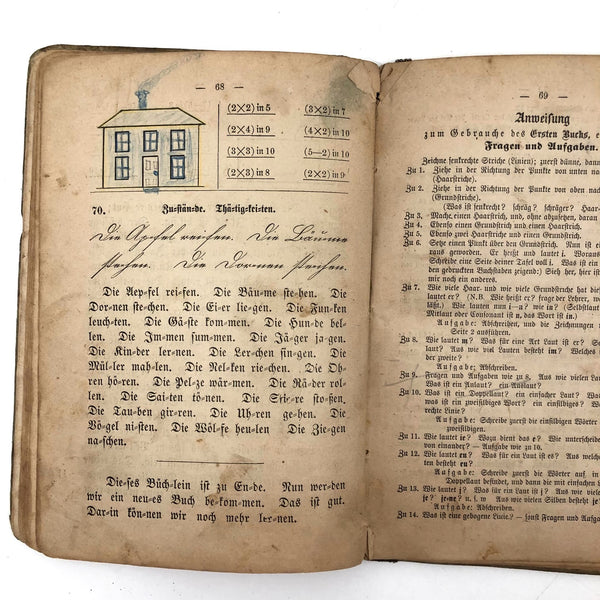 — 68 —
(2×2) in 5 (3×2) in 7
(2×4) in 9 (4×2) in 10
(3×3) in 10 (5—2) in 10
(2×3) in 8 (2×2) in 9
70. Zu=stän=de. Thä=tig=kei=ten.
Die Aepfel reifen. Die Bäume
stehen. Die Dornen stechen.
Die Aep=fel rei=fen. Die Bäu=me ste=hen. Die
Dor=nen ste=chen. Die Ei=er lie=gen. Die Fun=ken
leuch=ten. Die Gä=ste kom=men. Die Hun=de bel=
len. Die Im=men sum=men. Die Jä=ger ja=gen.
Die Kin=der ler=nen. Die Ler=chen sin=gen. Die
Mül=ler mah=len. Die Nel=ken rie=chen. Die Oh=
ren hö=ren. Die Pel=ze wär=men. Die Rä=der rol=
len. Die Sai=ten tö=nen. Die Stie=re sto=ßen.
Die Tau=ben gir=ren. Die Uh=ren ge=hen. Die
Vö=gel ni=sten. Die Wöl=fe heu=len. Die Zie=gen
na=schen.
Die=ses Büch=lein ist zu En=de. Nun wer=den
wir ein neu=es Buch be=kom=men. Das ist gut.
Dar=in kön=nen wir noch mehr ler=nen.
— 69 —
Anweisung
zum Gebrauche des Ersten Buchs,
Fragen und Aufgaben.
Zeichne senkrechte Striche (Linien); zuerst dünne, dann
Zu 1. Ziehe in der Richtung der Punkte von unten nach
(Haarstriche).
Zu 2. Ziehe in der Richtung der Punkte von oben nach
(Grundstriche).
(Was ist senkrecht? schräg? schräger? Haar=
Zu 3. Mache einen Haarstrich und, ohne abzusetzen, daran
Zu 4. Ebenso einen Grundstrich und einen Haarstrich.
Zu 5. Ebenso zwei Haarstriche und einen Grundstrich.
Zu 6. Setze einen Punkt über den Grundstrich. Nun ist
raus geworden. Er heißt und lautet i. Woraus
Schreibe eine Seite deiner Tafel voll i. (Was ist ein
den gedruckten Buchstaben zeigend:) Sieh her, hier ist
mir noch ein anderes.
Zu 7. Wie viele Haar= und wie viele Grundstriche hat die
lautet er? (N.B. Wie heißt er? frage der Lehrer,
läßt.) Wie lauten nun i—n? wie in? (Selbstlaut
Mitlaut oder Consonant ist n, das Wort ist in.)
Aufgabe: Abschreiben, und die Zeichnungen
Seite 2 ausführen.
Zu 8. Wie lautet m? Was für eine Art Laut ist er?
laut? Aus wie viel Lauten besteht im? Welches
der zweite?
Aufgabe: Abschreiben.
Zu 9. Fragen und Aufgaben wie zu 8. Aus wie vielen Lauten
Was ist ein Anlaut? ein Auslaut?
Zu 10. Was ist ein Doppellaut? ein einfacher Laut?
was ist ein zweisilbiges Wort? ein einsilbiges?
rechte Linie?
Aufgabe: Schreibe die einsilbigen
zweisilbigen.
Zu 11. Wie lautet ie? Wozu dient das e? Wie unterscheidet
von einander? — Aufgabe wie zu 10.
Zu 12. Wie lautet en? Was für ein Laut ist es? Aus
besteht en?
Aufgabe: Schreibe zuerst die Wörter auf, in
Doppellaut befindet, und dann die mit einfachen
Zu 13. Wie lautet j? Was für ein Laut ist j? Aus wie vielen
je? je=ne? u. s. w. Aus wie vielen Silben besteht
Aufgabe: Abschreiben.
Zu 14. Was ist eine gebogene Linie? — sonst Fragen und Aufgaben